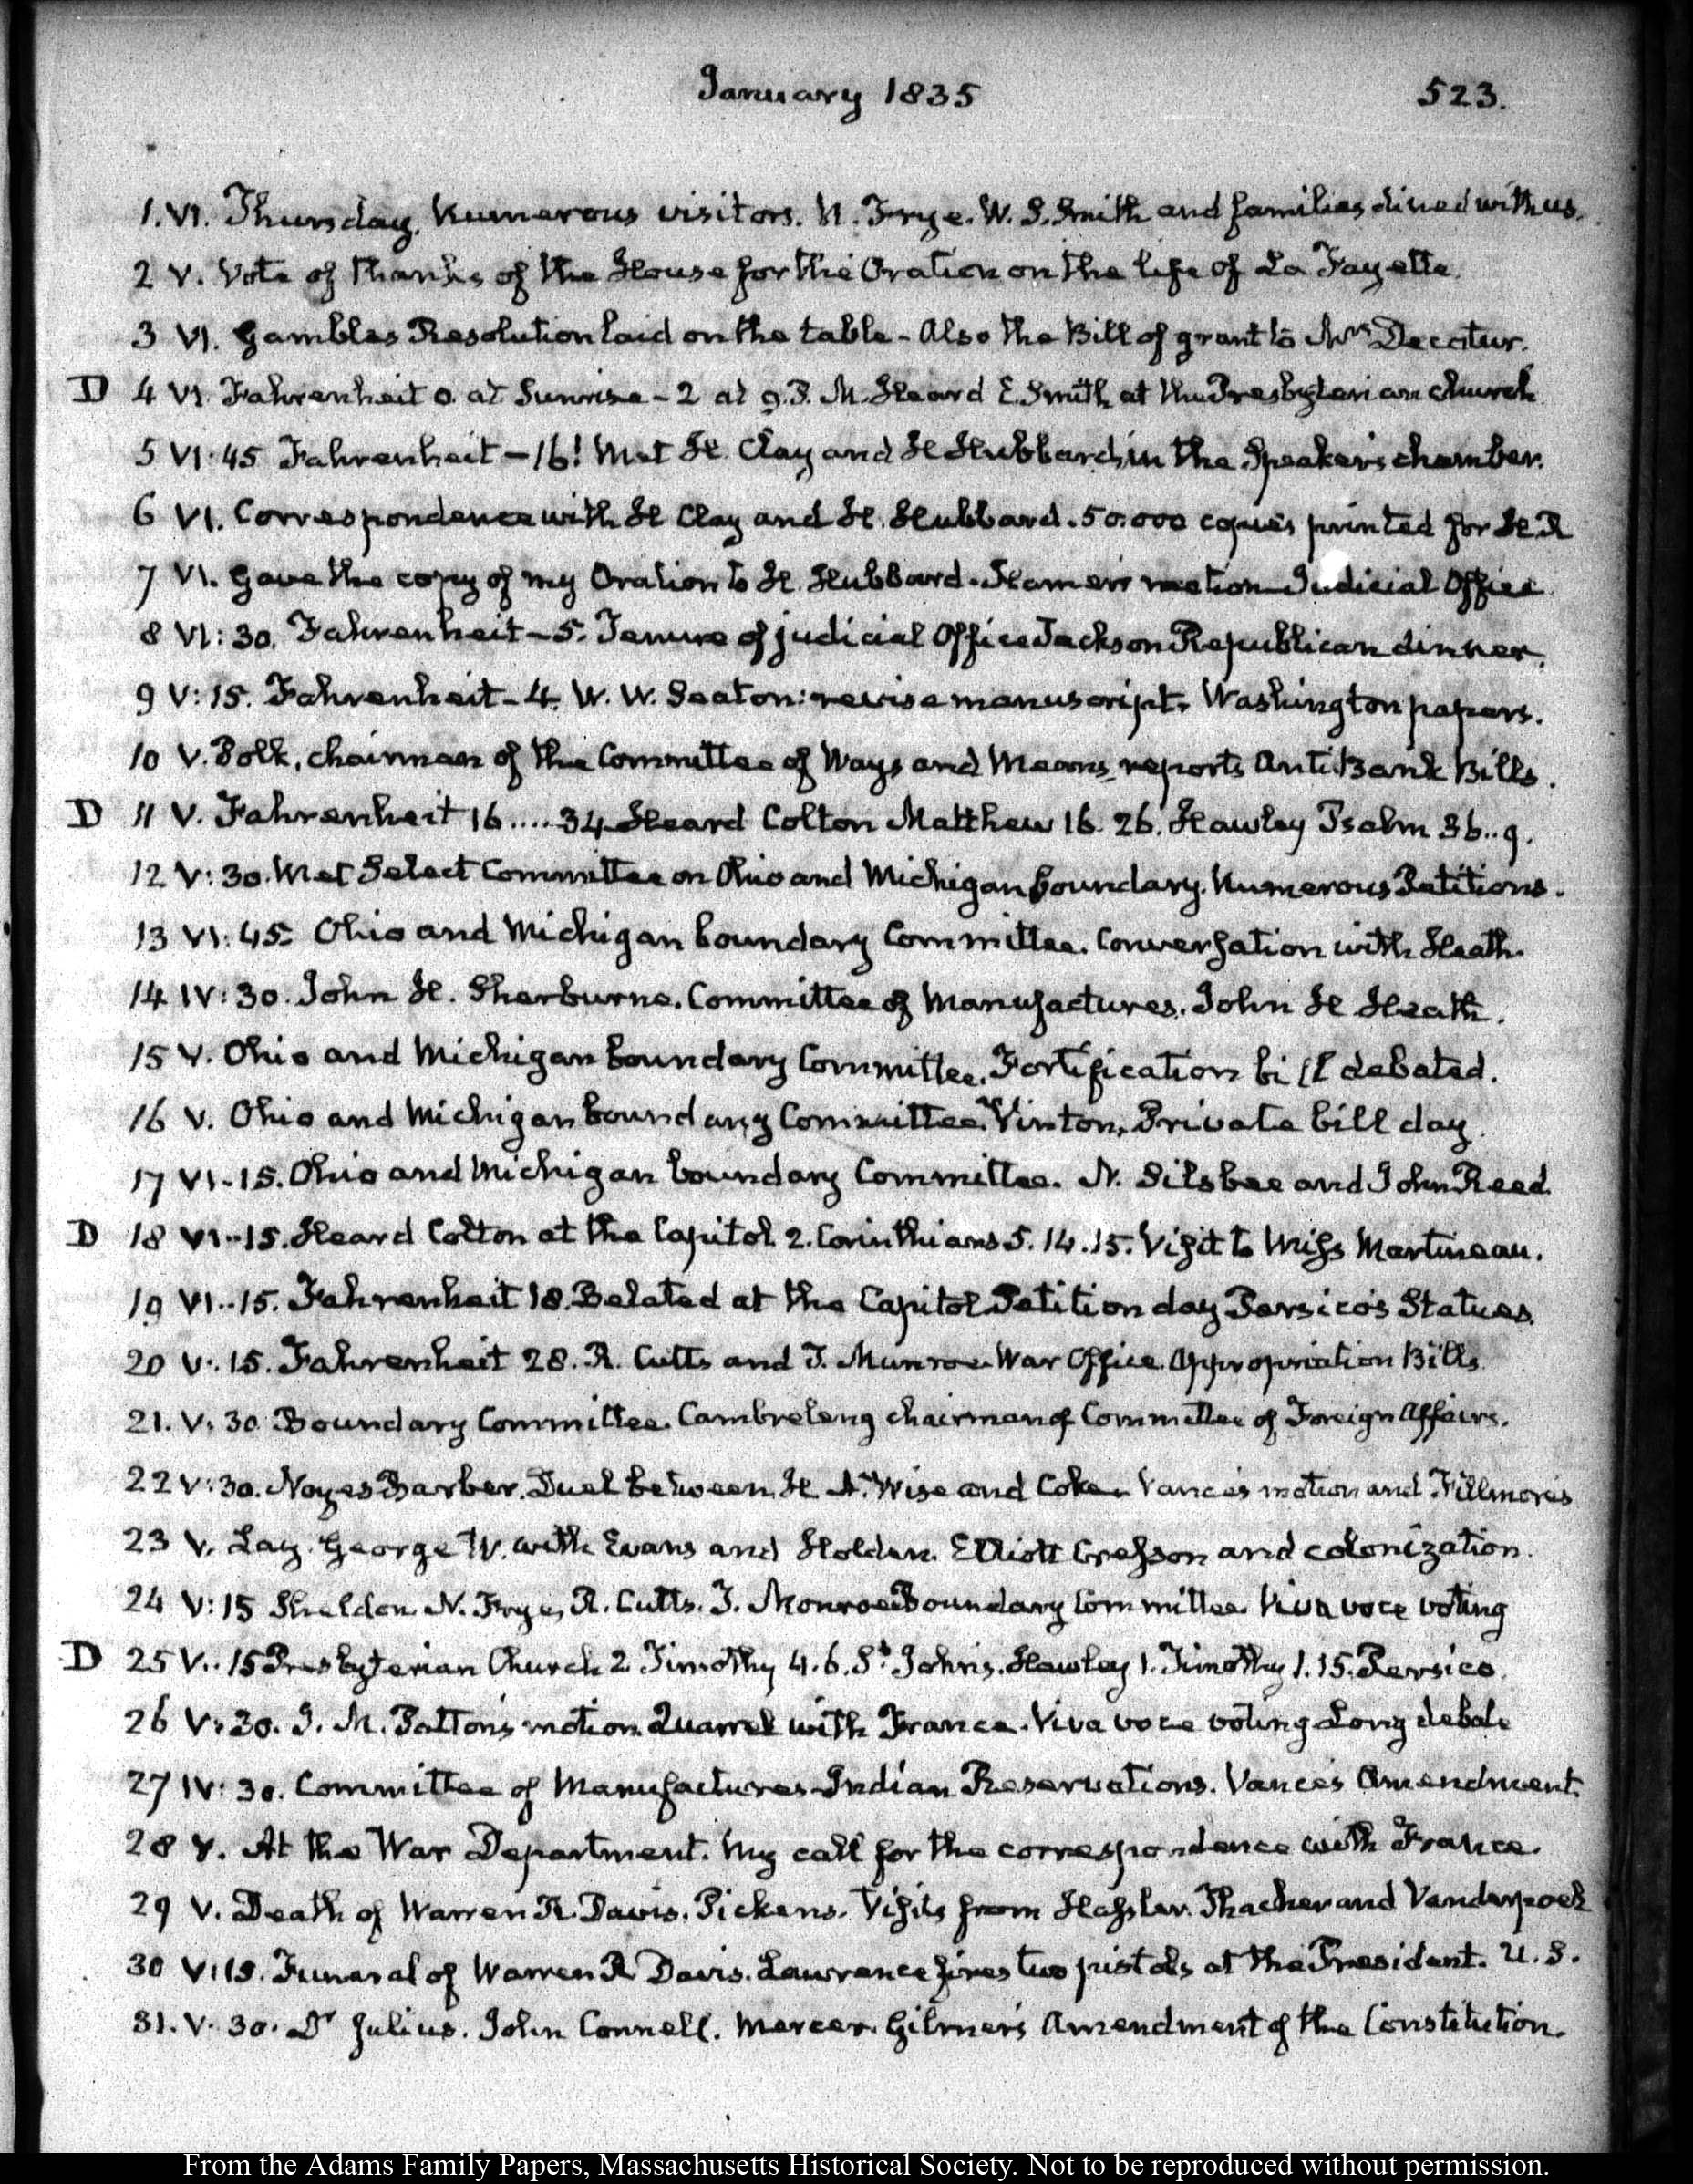 January 1835
523.
1. VI. Thursday. Numerous visitors. N. Frye. W. S. Smith and families dined with us.
2 V. Vote of thanks of the House for the Oration on the life of La Fayette.
3 VI. Gambles Resolution laid on the table - Also the Bill of grant to Mrs Decatur.
D 4 VI. Fahrenheit 0. at Sunrise - 2 at 9. P. M. Heard E. Smith at the Presbyterian church
5 VI: 45 Fahrenheit - 16! Met H. Clay and H Hubbard, in the Speaker's chamber.
6 VI. Correspondence with H Clay and H. Hubbard. 50.000 copies printed for H. R
7 VI. Gave the copy of my Oration to H. Hubbard. Hamer's motion Judicial Office.
8 VI: 30. Fahrenheit - 5. Tenure of judicial Office Jackson Republican dinner.
9 V: 15. Fahrenheit - 4. W. W. Seaton: revise manuscript. Washington papers.
10 V. Polk, chairman of the Committee of Ways and Means, reports Anti Bank Bills.
D 11 V. Fahrenheit 16 .... 34 Heard Colton Matthew 16. 26. Hawley Psalm 36..9.
12 V: 30. Met Select Committee on Ohio and Michigan boundary. Numerous Petitions.
13 VI: 45. Ohio and Michigan boundary Committee. Conversation with Heath.
14 IV: 30. John H. Sherburne. Committee of Manufactures. John H Heath.
15 V. Ohio and Michigan boundary Committee. Fortification bill debated.
16 V. Ohio and Michigan boundary Committee. Vinton. Private bill day.
17 VI-15. Ohio and Michigan boundary Committee. N. Silsbee and John Reed.
D 18 VI--15. Heard Colton at the Capitol. 2. Corinthians 5. 14. 15. Visit to Miss Martineau.
19 VI..15. Fahrenheit 18. Belated at the Capitol Petition day Persico's Statues.
20 V:.15. Fahrenheit 28. R. Cutts and J. Munroe War Office. Appropriation Bills
21. V: 30 Boundary Committee. Cambreleng chairman of Committee of Foreign Affairs.
22 V: 30. Noyes Barber. Duel between H A. Wise and Coke. Vance's motion and Fillmore's
23 V. Lay. George W. with Evans and Holden. Elliott Cresson and colonization.
24 V: 15 Sheldon. N. Frye, R. Cutts. J. Monroe Boundary Committee. Viva voce voting
D 25 V..15 Presbyterian Church 2 Timothy 4. 6. St. John's. Hawley 1. Timothy 1. 15. Persico.
26 V: 30. J. M. Patton's motion. Quarrel with France. Viva voce voting Long debate
27 IV: 30. Committee of Manufactures. Indian Reservations. Vance's Amendment.
28 V. At the War Department. My call for the correspondence with France.
29 V. Death of Warren R. Davis. Pickens. Visits from Hassler. Thacher and Vanderpoel
30 V: 15. Funeral of Warren R Davis. Lawrence fires two pistols at the President. U. S.
31. V. 30. Dr Julius. John Connell. Mercer. Gilmer's Amendment of the Constitution.
From the Adams Family Papers, Massachusetts Historical Society. Not to be reproduced without permission.